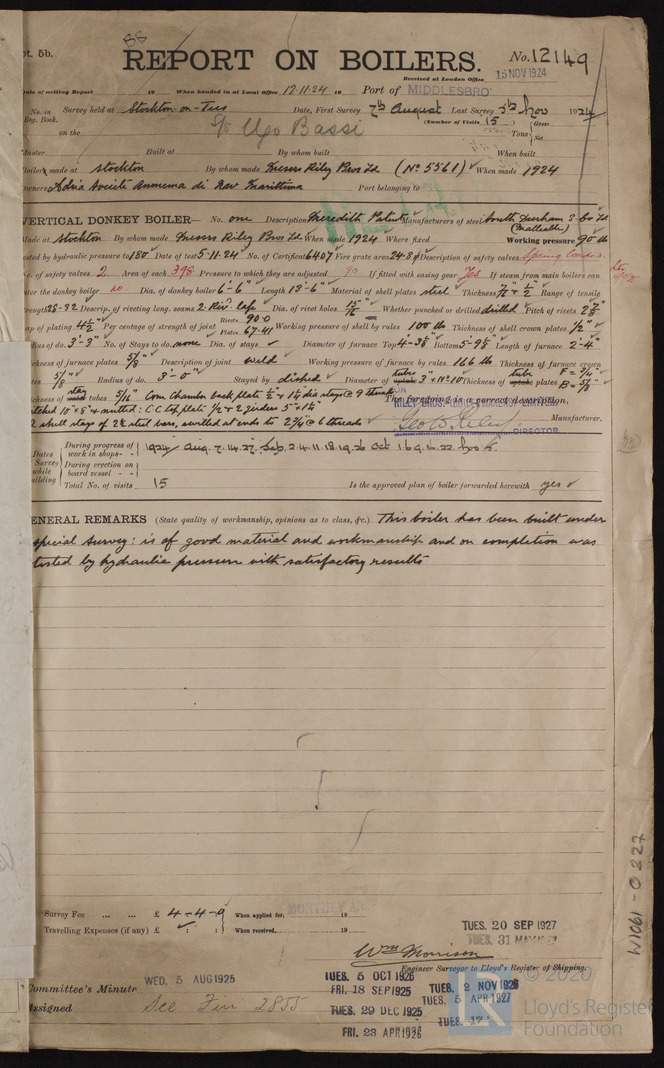 pt. 5b.
REPORT ON BOILERS.
No. 12149
Received at London Office
15 NOV 1924
Date of writing Report 19 When handed in at Local Office 12.11.24 19 Port of MIDDLESBRO'
No. in Survey held at Stockton-on-Tees Date, First Survey 7th August Last Survey 5th Nov 1924
Reg. Book. (Number of Visits 15)
on the S/S Ugo Bassi Tons Gross Net
Master Built at By whom built When built
Boilers made at Stockton By whom made Messrs Riley Bros Ld (No 5561) When made 1924
Owners Adria Societi Anonema di Nav Marittima Port belonging to
VERTICAL DONKEY BOILER— No. one Description Meredith Patent Manufacturers of steel South Durham S. & Co Ld
(Malleable)
Made at Stockton By whom made Messrs Riley Bros Ld When made 1924 Where fixed Working pressure 90 lb
tested by hydraulic pressure to 180 Date of test 5.11.24 No. of Certificate 6407 Fire grate area 24.8 Description of safety valves Spring
No. of safety valves 2 Area of each 3.98 Pressure to which they are adjusted 90 If fitted with easing gear Yes If steam from main boilers can
enter the donkey boiler no Dia. of donkey boiler 6'-6" Length 13'-6" Material of shell plates steel Thickness Range of tensile
strength 28-32 Descrip. of riveting long. seams 2.Riv. laps Dia. of rivet holes 15/16" Whether punched or drilled drilled Pitch of rivets
Lap of plating 4 1/2" Per centage of strength of joint Rivets 90.0 Plates 67.41 Working pressure of shell by rules 100 lb Thickness of shell crown plates 1/2"
Radius of do. 3'-3" No. of Stays to do. none Dia. of stays Diameter of furnace Top Bottom Length of furnace
Thickness of furnace plates 5/8" Description of joint weld Working pressure of furnace by rules 166 lb Thickness of furnace crown
plates 5/8" Radius of do. 3'-0" Stayed by dished Diameter of tube 3" × No 10 Thickness of tube plates F = 9/16" B = 5/8"
Thickness of stay tubes 5/16" Com Chamber back plate 1/2" & 1 1/2 dia stays @ 9 threads
pitched 10" × 8" & nutted: C.C. top plate 1/2 & 2 girders
2 shell stays of steel bars, swelled at ends to 2 3/4 @ 6 threads
The foregoing is a correct description,
Manufacturer.
DIRECTOR
Dates of Survey while building
During progress of work in shops - - 1924 Aug. 7. 14. 22. Sep. 2. 4. 11. 18. 19. 26 Oct 1. 6. 9. 16. 22. Nov 5.
During erection on board vessel - -
Total No. of visits 15 Is the approved plan of boiler forwarded herewith yes
GENERAL REMARKS (State quality of workmanship, opinions as to class, &c.) This boiler has been built under
special survey: is of good material and workmanship and on completion was
tested by hydraulic pressure with satisfactory results
Survey Fee ... ... £ 4-4-0 When applied for, 19
Travelling Expenses (if any) £ : : When received, 19
TUES. 20 SEP 1927
TUES. 31 MAY 1927
Wm Morrison
Engineer Surveyor to Lloyd's Register of Shipping.
Committee's Minute WED. 5 AUG 1925
TUES. 5 OCT 1926
FRI. 18 SEP 1925
TUES. 2 NOV 1926
TUES. 5 APR 1927
Assigned See Fin 2855
TUES. 29 DEC 1925
FRI. 23 APR 1926
W1061-0227
© 2020
LR
Lloyd's Register
Foundation